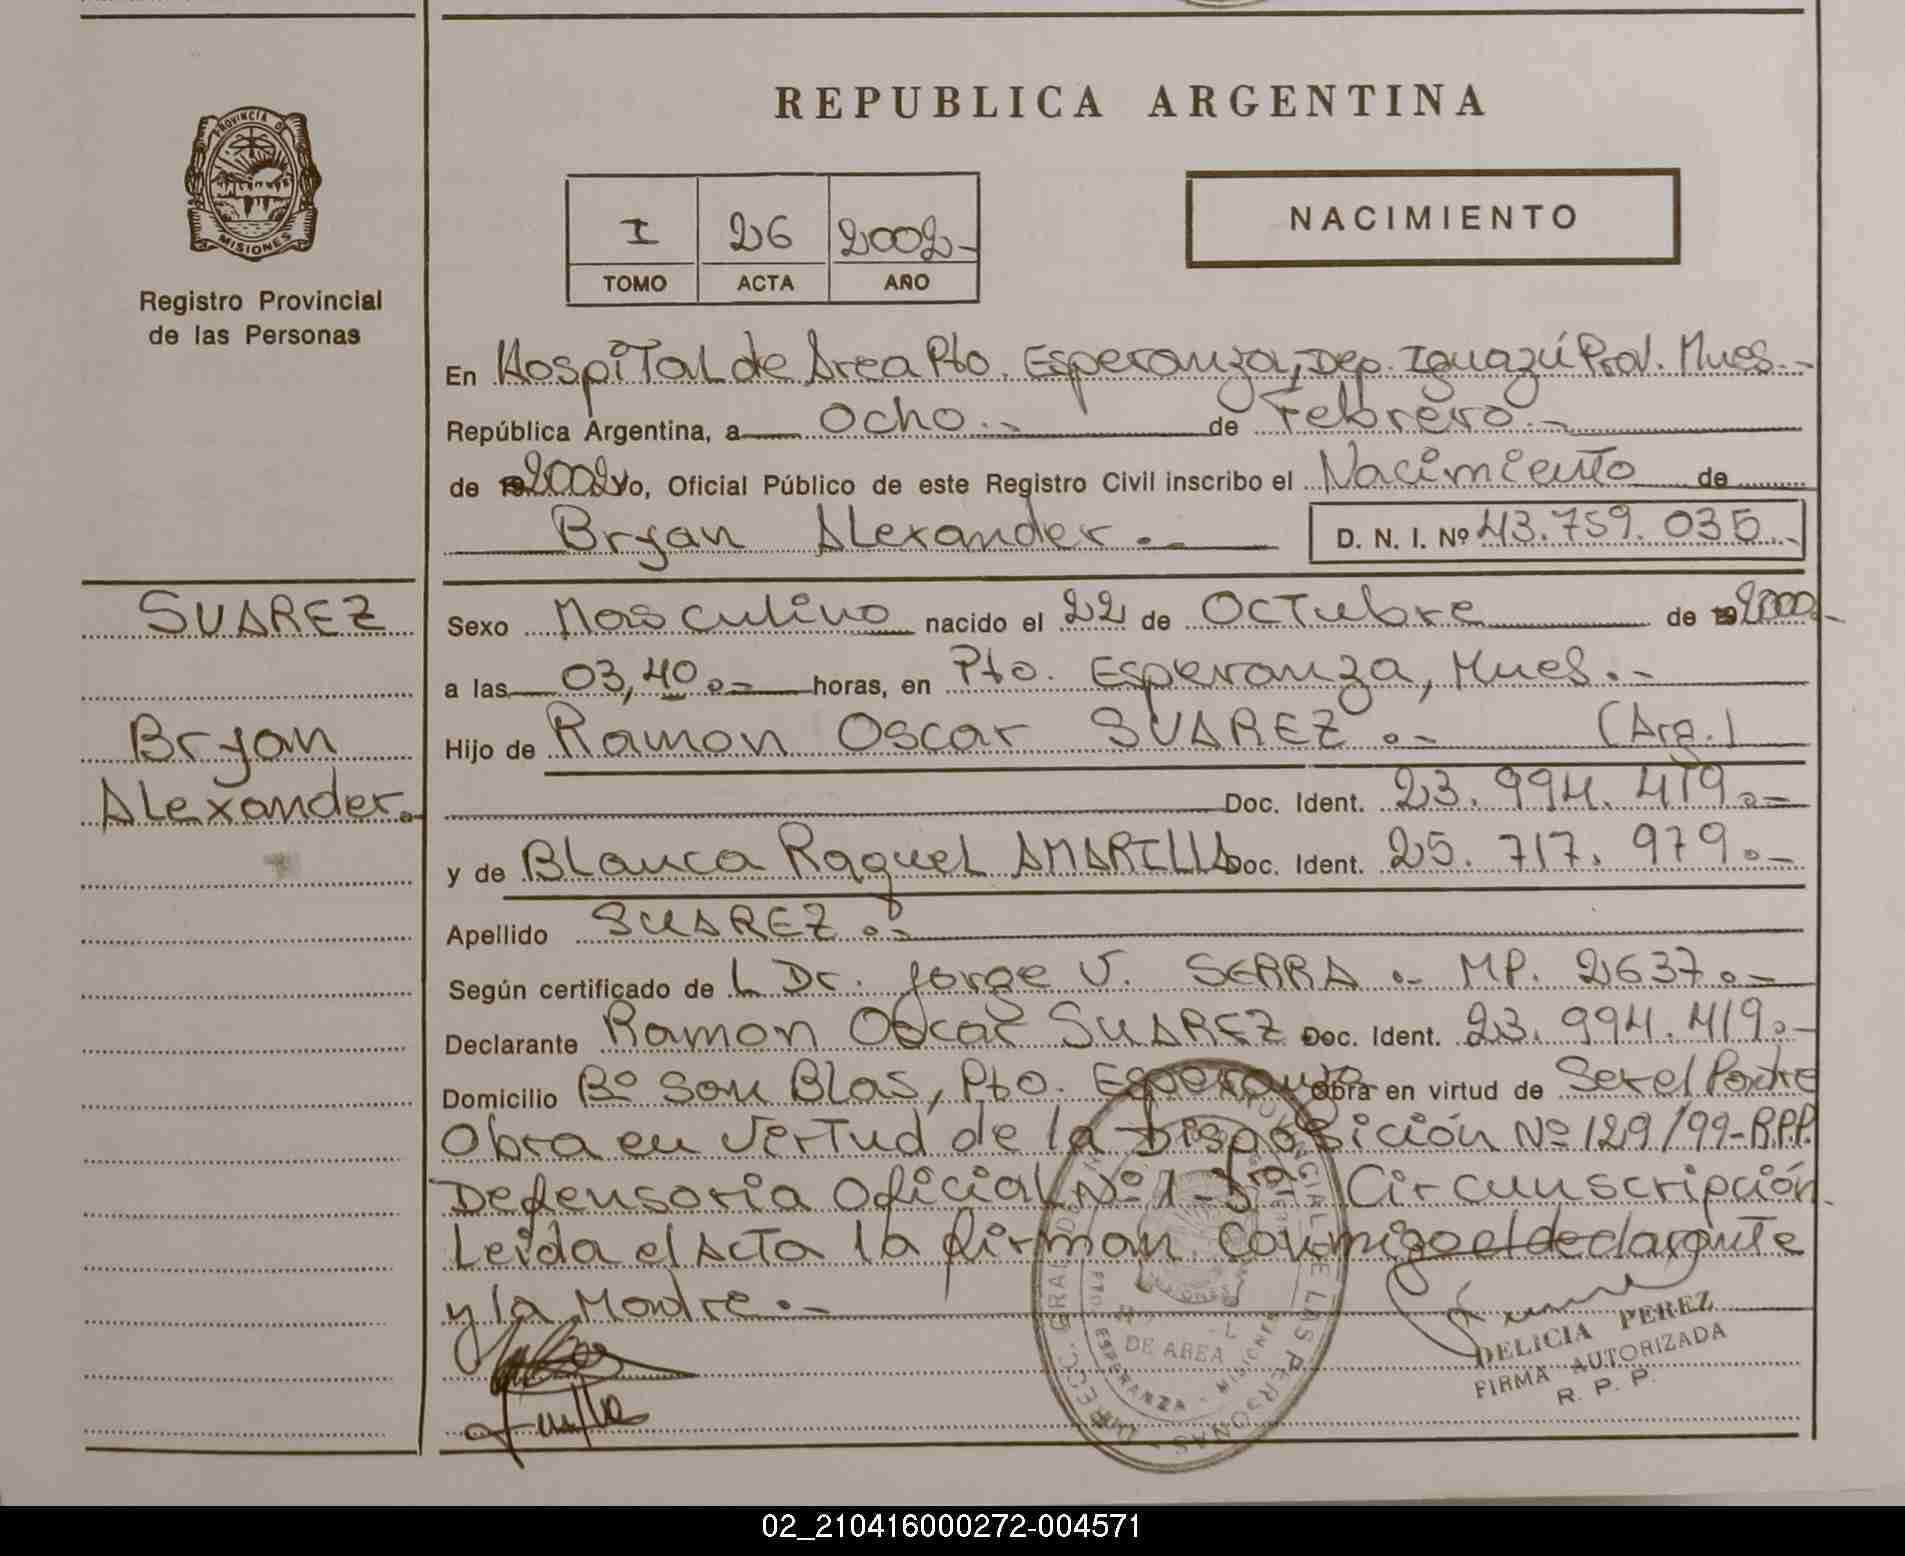 REPUBLICA ARGENTINA
PROVINCIA DE
MISIONES
Registro Provincial
de las Personas
I 26 2002-
TOMO ACTA AÑO
NACIMIENTO
En Hospital de Area Pto. Esperanza, Dep. Iguazú Prov. Mnes.-
República Argentina, a ocho.- de Febrero.-
de 2002 yo, Oficial Público de este Registro Civil inscribo el Nacimiento de
Bryan Alexander.- D. N. I. Nº 43.759.035.-
SUAREZ
Bryan
Alexander.
Sexo Masculino nacido el 22 de Octubre de 2000.-
a las 03,40.- horas, en Pto. Esperanza, Mnes.-
Hijo de Ramon Oscar SUAREZ.- (Arg.)
Doc. Ident. 23.994.419.-
y de Blanca Raquel AMARILLA Doc. Ident. 25.717.979.-
Apellido SUAREZ.-
Según certificado de L Dr. Jorge V. SERRA.- MP. 2637.-
Declarante Ramon Oscar SUAREZ Doc. Ident. 23.994.419.-
Domicilio Bº San Blas, Pto. Esperanza Obra en virtud de Ser el Padre
Obra en Virtud de la Disposición Nº 129/99-R.P.P.
Defensoria Oficial Nº 1- 3ra Circunscripción
Leida el Acta la firman Conmigo el declarante
y la Madre.-
DELICIA PEREZ
FIRMA AUTORIZADA
R. P. P.
DE AREA
PTO. ESPERANZA - MISIONES
02_210416000272-004571